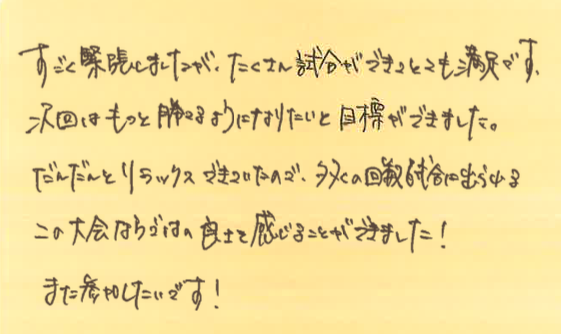 すごく緊張しましたが、たくさん試合ができてとても満足です。
次回はもっと勝てるようになりたいと目標ができました。
だんだんとリラックスできていたので、多くの回数試合に出られる
この大会ならではの良さを感じることができました！
また参加したいです！